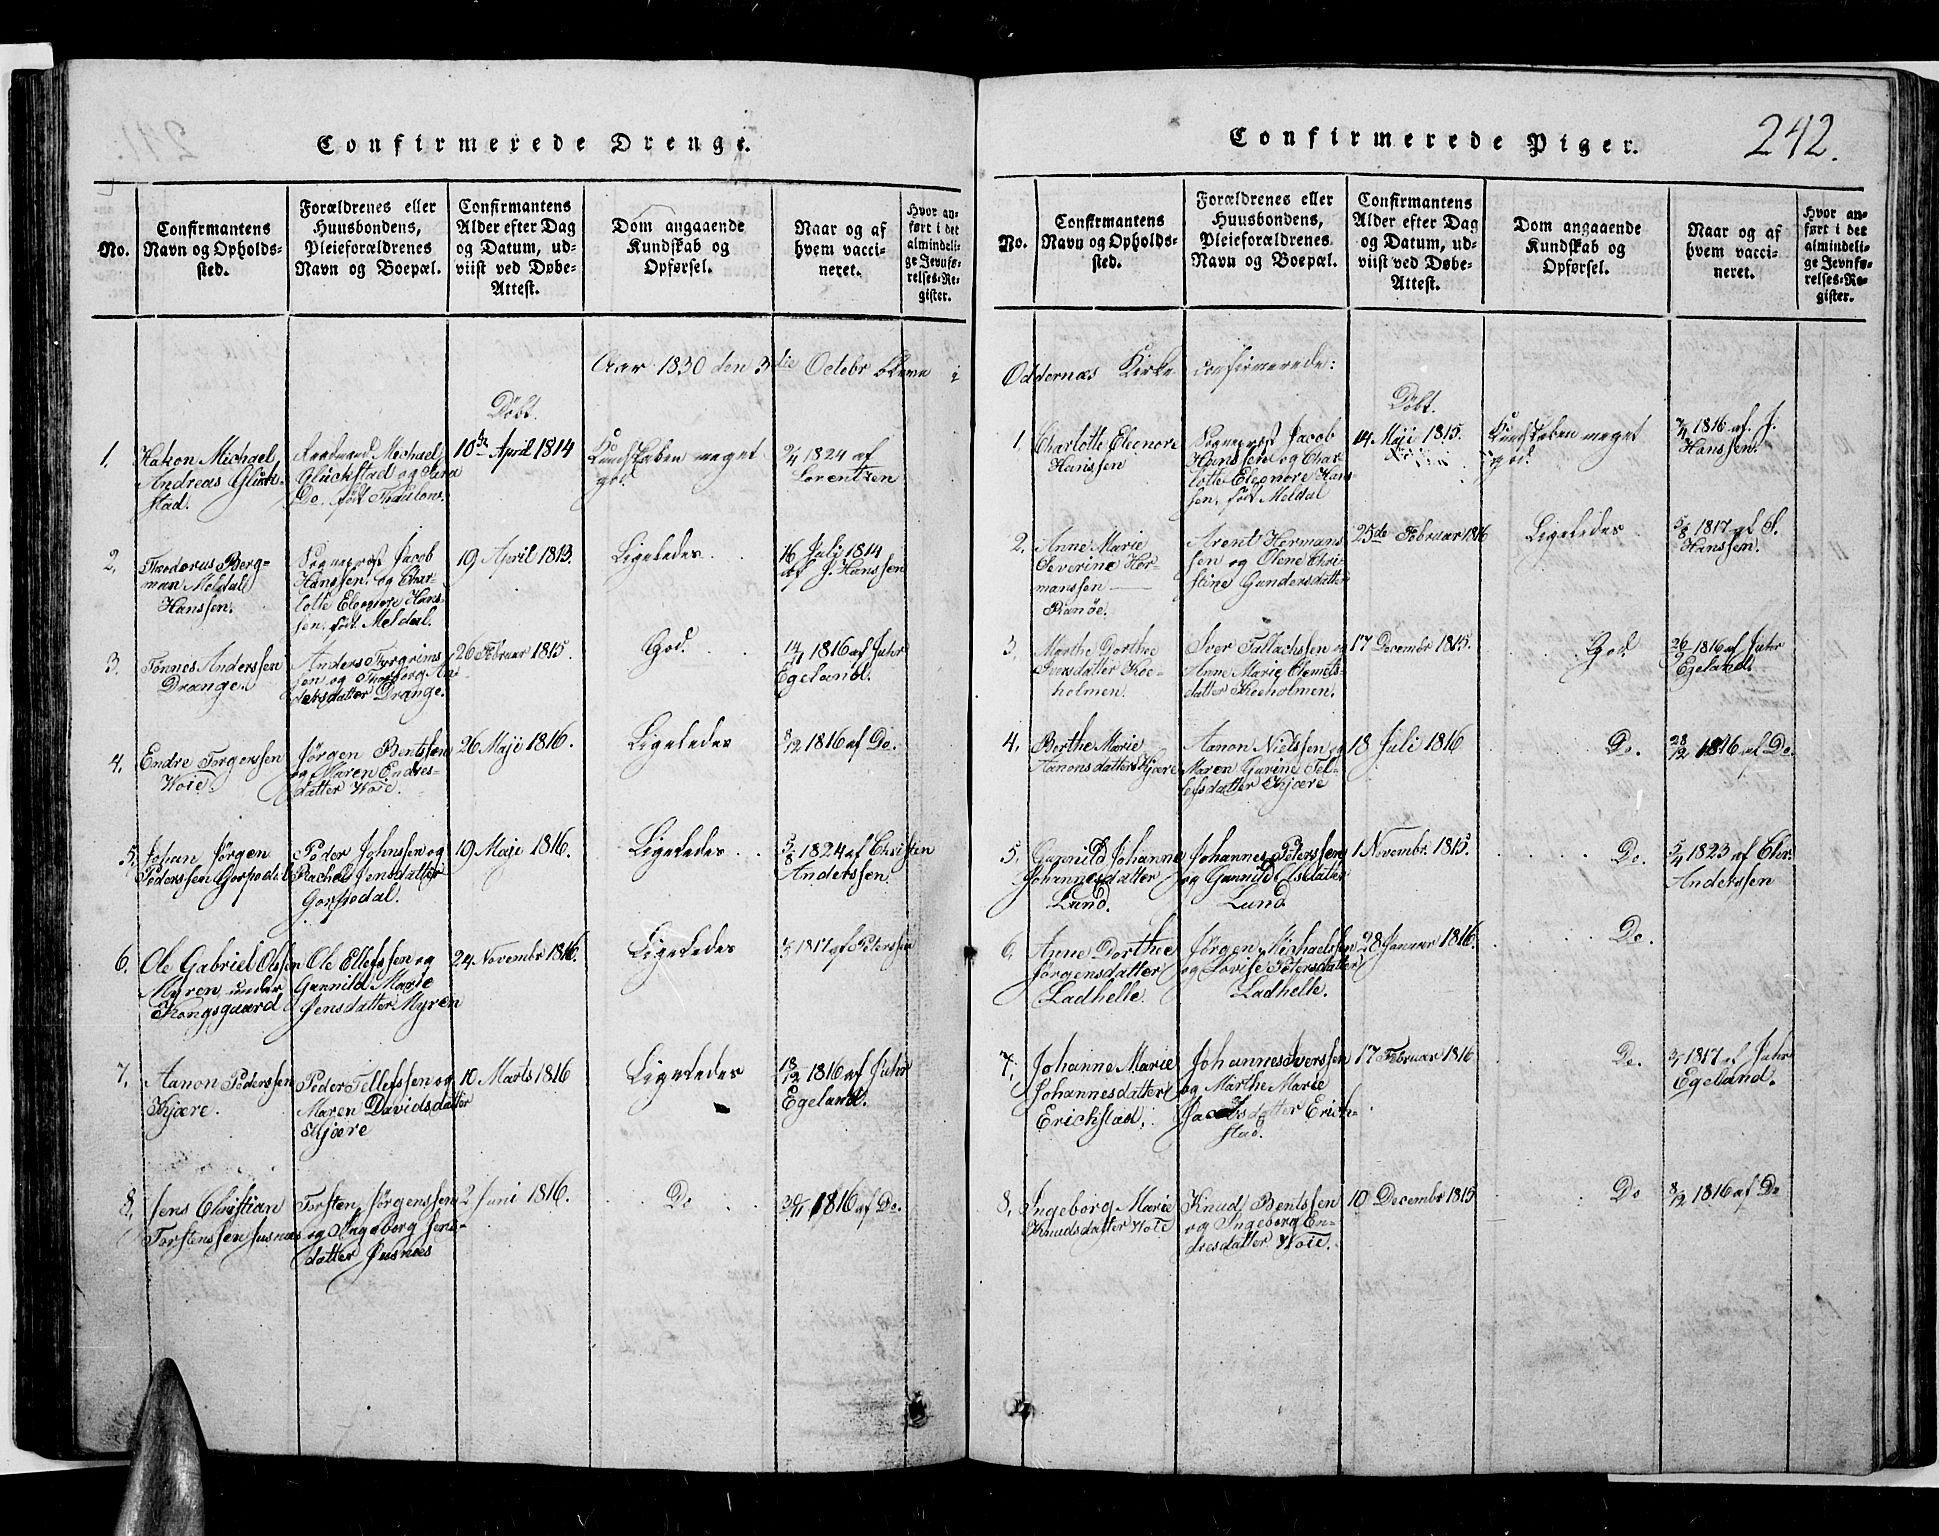 Confirmerede Drenge.
No.
Confirmantens
Navn og Opholds-
sted.
Forældrenes eller
Huusbondens,
Pleieforældrenes
Navn og Boepæl.
Confirmantens
Alder efter Dag
og Datum, ud-
viist ved Døbe-
Attest.
Dom angaaende
Kundskab og
Opførsel.
Naar og af
hvem vacci-
neret.
Hvor an-
ført i det
almindeli-
ge Jevnfø-
relses-Re-
gister.
Aar 1830 den 3die Octobr bleve i
Döbt.
1.
Hakon Michael
Andreas Glück-
stad.
Raadmand Michael
Glückstad og
Do. født Thaulow.
10de April 1814
Kundskaben meget
god.
9/4 1824 af
Lorentzen
2.
Theodorus Berg-
man Meldal
Hanssen.
Sogneprost Jacob
Hanssen og Char-
lotte Eleonore Hans-
sen. født Meldal.
19 April 1813
Ligeledes.
16 Juli 1814
af J. Hanssen
3.
Tönnes Anderssen
Drange.
Anders Torgrims-
sen og Thorborg An-
dersdatter Drange.
26 Februar 1815.
God.
14/11 1816 af Juhr
Egeland.
4.
Endre Jörgenssen
Woie.
Jörgen Bentssen
og Maren Endres-
datter Woie.
26 Maji 1816.
Ligeledes
8/12 1816 af Do.
5.
Johan Jörgen
Pederssen
Peder Johnssen og
Rachel Jensdatter
19 Maji 1816.
Ligeledes
5/8 1824 af Christen
Anderssen.
6.
Ole Gabriel Olssen
Myren under
Kongsgaard
Ole Ellefssen og
Gunnild Marie
Jensdatter Myren
24 Novembr 1816.
Ligeledes
1817 af Peterssen
7.
Aanon Pederssen
Kjære.
Peder Tellefssen og
Maren Davidsdatter
Kjære
10 Marts 1816
Ligeledes
18/12 1816 af Juhr
Egeland.
8.
Jens Christian
Torstenssen Jusnæs
Torsten Jörgenssen
og Ingeborg Jens-
datter Jusnæs
2 Juni 1816.
Do
30/11 1816 af Do.
Confirmerede Piger.
242.
No.
Confirmantens
Navn og Opholds-
sted.
Forældrenes eller
Huusbondens,
Pleieforældrenes
Navn og Boepæl.
Confirmantens
Alder efter Dag
og Datum, ud-
viist ved Døbe-
Attest.
Dom angaaende
Kundskab og
Opførsel.
Naar og af
hvem vacci-
neret.
Hvor an-
ført i det
almindeli-
ge Jevnfø-
relses-Re-
gister.
Oddernæs Kirke confirmerede:
Döbt.
1
Charlotte Eleonore
Hanssen
Sogneprost Jacob
Hanssen og Char-
lotte Eleonore Hans-
sen. født Meldal
14 Maji 1815.
Kundskaben meget
god.
7/4 1816 af J.
Hanssen.
2.
Anne Marie
Severine Her-
manssen
Arent Hermans-
sen og Olene Chri-
stine Gundersdatter
25de Februar 1816
Ligeledes
5/8 1817 af J.
Hanssen.
3.
Marthe Dorthe
Iversdatter Koe-
holmen.
Iver Tallachsen og
Anne Marie Clemets-
datter Koeholmen.
17 Decembr 1815.
God
26/9 1816 af Juhr
Egeland.
4.
Berthe Marie
Aanonsdatter Kjære
Aanon Nielssen og
Maren Gurine Tel-
lefsdatter Kjære
18 Juli 1816
Do.
28/12 1816 af Do.
5.
Gunnild Johanne
Johannesdatter
Lund.
Johannes Peterssen
og Gunnild Elsdatter
Lund
1 Novembr. 1815.
Do.
5/4 1823 af Chr.
Anderssen
6.
Anne Dorthe
Jörgensdatter
Ladhelle
Jörgen Michaelssen
og Lovise Petersdatter
Ladhelle.
28 Januar 1816.
Do.
7.
Johanne Marie
Johannesdatter
Erichstad.
Johannes Iverssen
og Marthe Marie
Jacobsdatter Erich-
stad.
17 Februar 1816
Do.
1817 af Juhr
Egeland.
8.
Ingeborg Marie
Knudsdatter Woie
Knud Bentssen
og Ingeborg En-
dresdatter Woie.
10 Decembr 1815
Do
8/12 1816 af Do